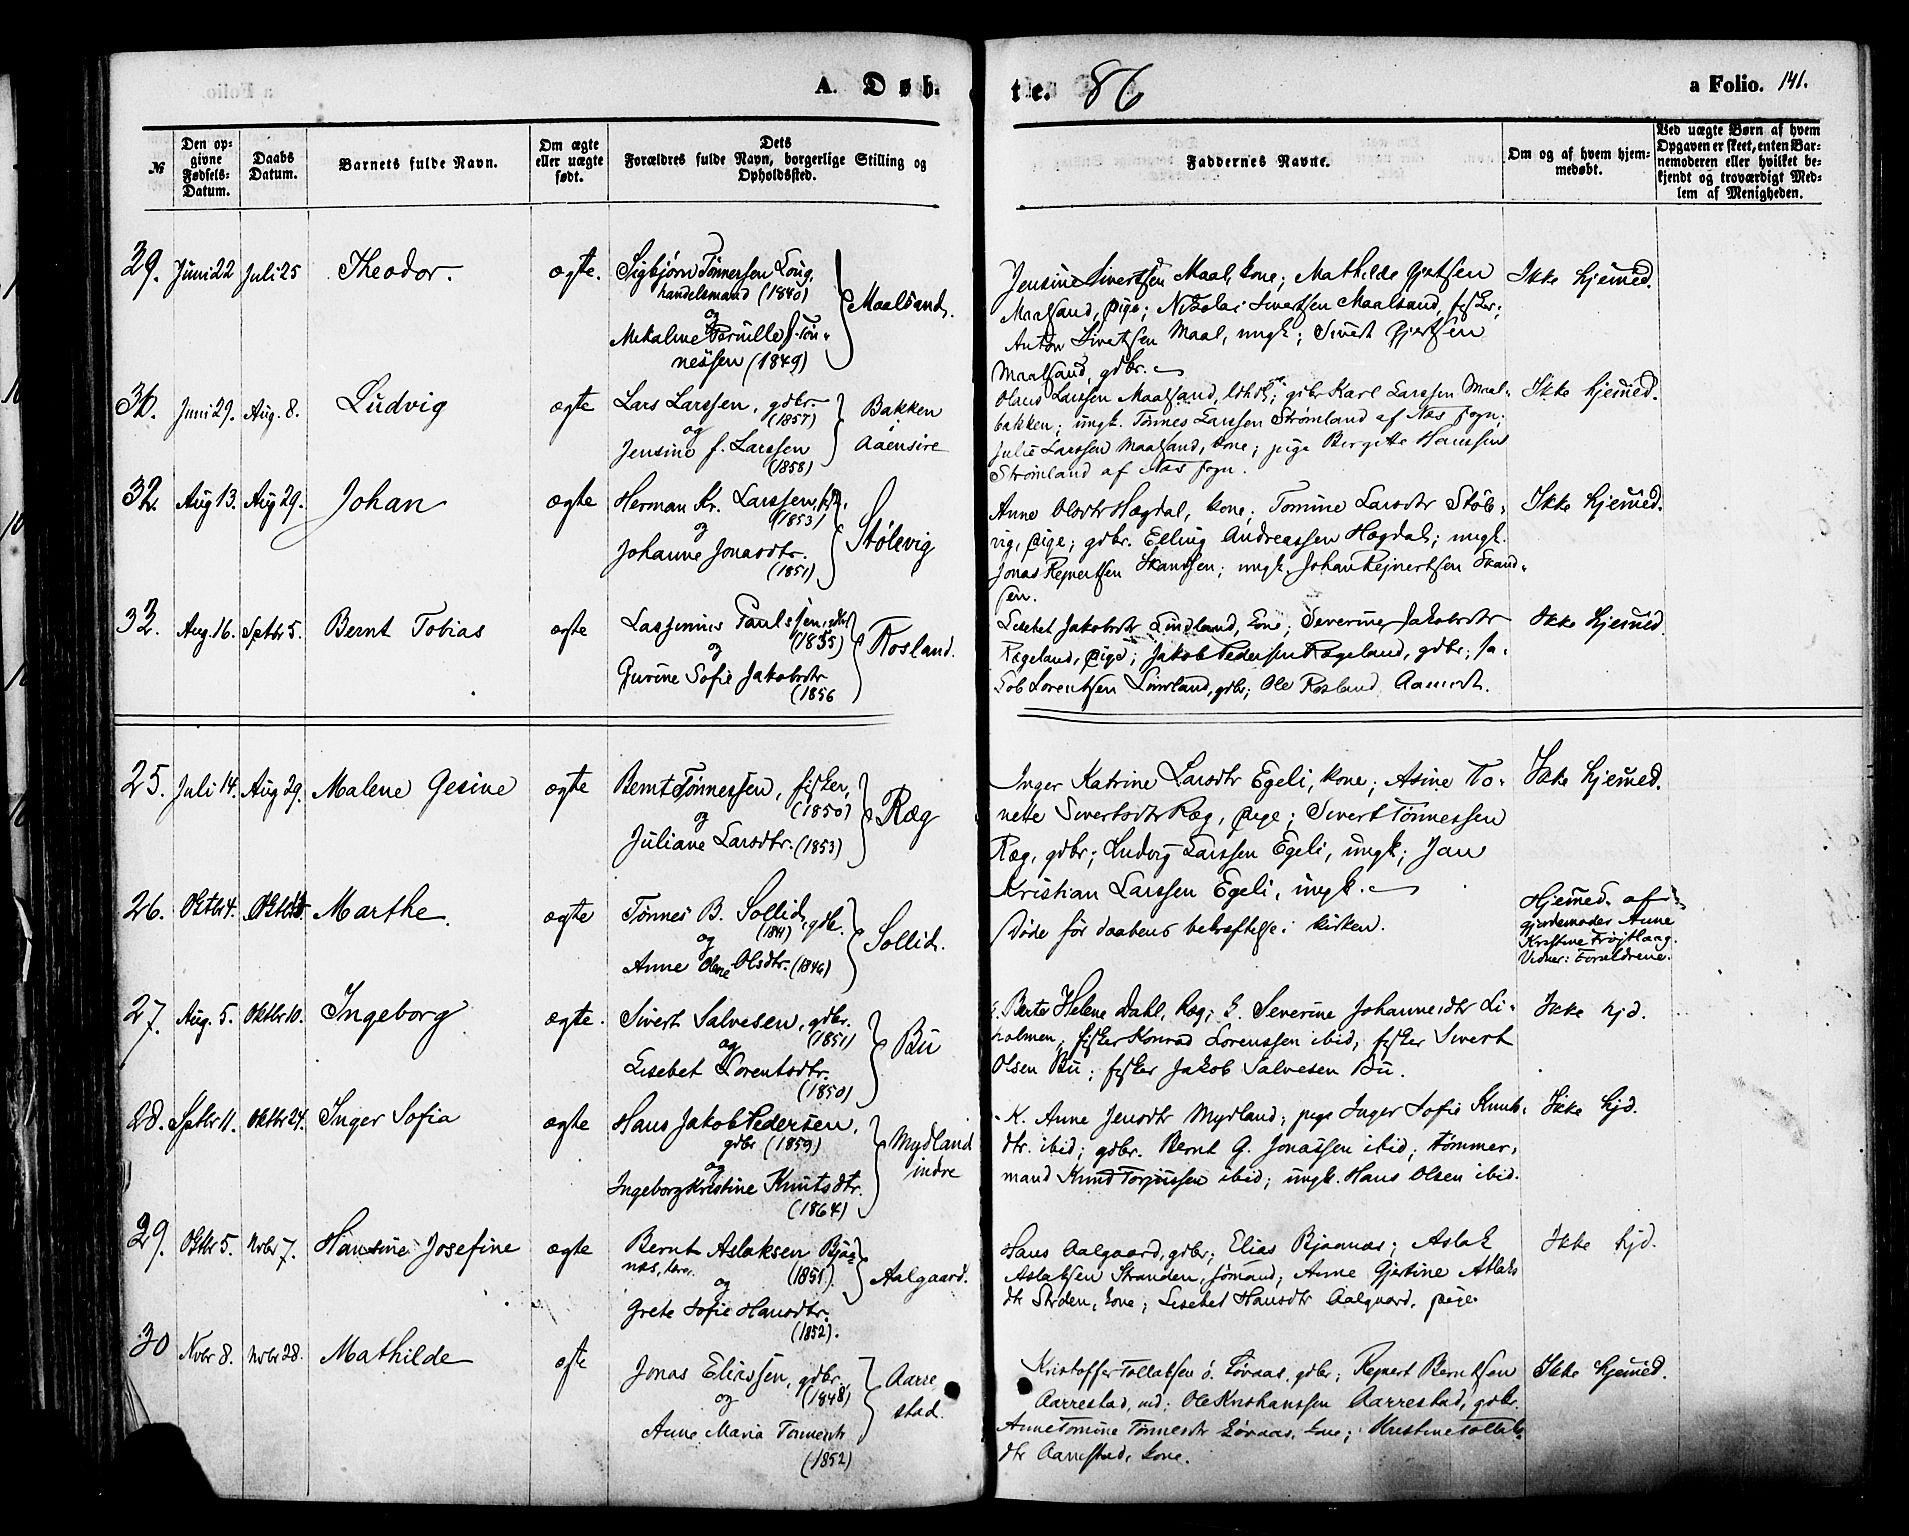 A. Døb-
te. 86
a Folio. 141.
№
Den op-
givne
Fødsels-
Datum.
Daabs
Datum.
Barnets fulde Navn.
Om ægte
eller uægte
født.
Dets
Forældres fulde Navn, borgerlige Stilling og
Opholdssted.
Faddernes Navne.
Om og af hvem hjem-
medøbt.
Ved uægte Børn af hvem
Opgaven er skeet, enten Bar-
nemoderen eller hvilket be-
kjendt og troværdigt Med-
lem af Menigheden.
29. Juni 22 Juli 25 Theodor. ægte.
Sigbjørn Tønnessen Loug,
handelsmand (1840)
og
Mekaline Pernille f. Tøn-
nessen (1849)
Maalsand.
Jensine Sivertsen Maal, kone; Mathilde Gjertsen
Maalsand, pige; Nikolai Sivertsen Maalsand, fisker;
Anton Sivertsen Maal, ungk; Sivert Gjertsen
Maalsand, gdbr.
Ikke hjemmed.
Juni 29. Aug. 8. Ludvig ægte
Lars Larssen, gdbr.
(1857)
og
Jensine f. Larssen
(1858)
Bakken
Aaensire
Olaus Larssen Maalsand, gdbr Karl Larssen Maal-
bakken; ungk. Tønnes Larssen Strømland af Næs sogn;
Julie Larssen Maalsand, kone; pige Bergitte Hanssen
Strømland af Næs sogn.
Ikke hjemmed.
32. Aug 13. Aug 29. Johan ægte
Herman Kr. Larssen,
(1853)
og
Johanne Jonasdtr.
(1851)
Stølevig
Anne Olsdtr Hægdal, kone; Tomine Larsdtr Støle-
vig, pige; gdbr. Elling Andreassen Hægdal; ungk.
Jonas Rejnertsen Skandsen; ungk. Johan Rejnertsen Skand-
sen.
Ikke hjemmed.
33. Aug. 16. Septbr 5. Bernt Tobias ægte
Lassenius Paulssen,
(1855)
og
Gurine Sofie Jakobsdtr
(1856
Rosland.
Lisebet Jakobsdtr Lindland, kone; Severine Jakobsdtr
Rægeland, pige; Jakob Pedersen Rægeland, gdbr; Ja-
kob Lorentsen Lindland, gdbr; Ole Rosland Aamodt.
Ikke hjemmed.
25. Juli 14. Aug 29. Malene Gesine ægte
Bernt Tønnessen, fisker,
(1850)
og
Juliane Larsdtr. (1853)
Ræg
Inger Katrine Larsdtr Egeli, kone; Asine To-
nette Sivertsdtr Ræg, pige; Sivert Tønnessen
Ræg, gdbr; Ludvig Larssen Egeli, ungk; Jan
Kristian Larssen Egeli, ungk.
Ikke hjemmed.
26. Oktbr 4. Marthe. ægte
Tønnes B. Sollid, gdbr.
(1841)
og
Anne Oline Olsdtr. (1846)
Sollid.
Døde før daabens bekræftelse i kirken.
Hjemmed. af
gjordemoder Anne
Kristine Frøjtlaag.
Vidner: Forældrene.
27. Aug. 5. Oktbr 10. Ingeborg ægte.
Sivert Salvesen, gdbr.
(1851)
og
Lisebet Lorentsdtr.
(1850)
Bu
Berte Helene Dahl, Ræg; k. Severine Johannesdtr Li-
holmen, fisker Konrad Lorenssen ibid, fisker Sivert
Olsen Bu; fisker Jakob Salvesen Bu.
Ikke hjd.
28. Septbr 11. Oktbr 24. Inger Sofia ægte
Hans Jakob Pedersen,
gdbr (1859)
og
Ingeborg Kristine Knutsdtr.
(1864)
Mydland
indre
K. Anne Jensdtr Mydland; pige Inger Sofie Knuts-
dtr. ibid; gdbr. Bernt G. Jonassen ibid; tømmer-
mand Knud Torjussen ibid; ungk. Hans Olsen ibid.
Ikke hjd.
29. Oktbr 5. Nvbr 7. Hansine Josefine ægte
Bernt Aslaksen Bjåg-
næs,
(1851)
og
Grete Sofie Hansdtr.
(1852).
Aalgaard.
Hans Aalgaard, gdbr; Elias Bjaanæs; Aslak
Aslaksen Stranden, sømand; Anne Gjertine Aslaks
dtr Strden, kone; Lisebet Hansdtr Aalgaard, pige.
Ikke hjd.
30 Nvbr 8. Nvbr 28. Mathilde ægte
Jonas Eliessen, gdbr.
(1848)
og
Anne Maria Tønnesdtr
(1852)
Aarre
stad.
Kristoffer Tollaksen ø. Løvaas, gdbr; Rejnert Berntsen
Aarrestad, Ole Kristianssen Aarrestad, gdbr.
Anne Tomine Tønnesdtr Løvaas, kone; Kristine Tollaks
dtr Aarrestad, kone.
Ikke hjemmed.